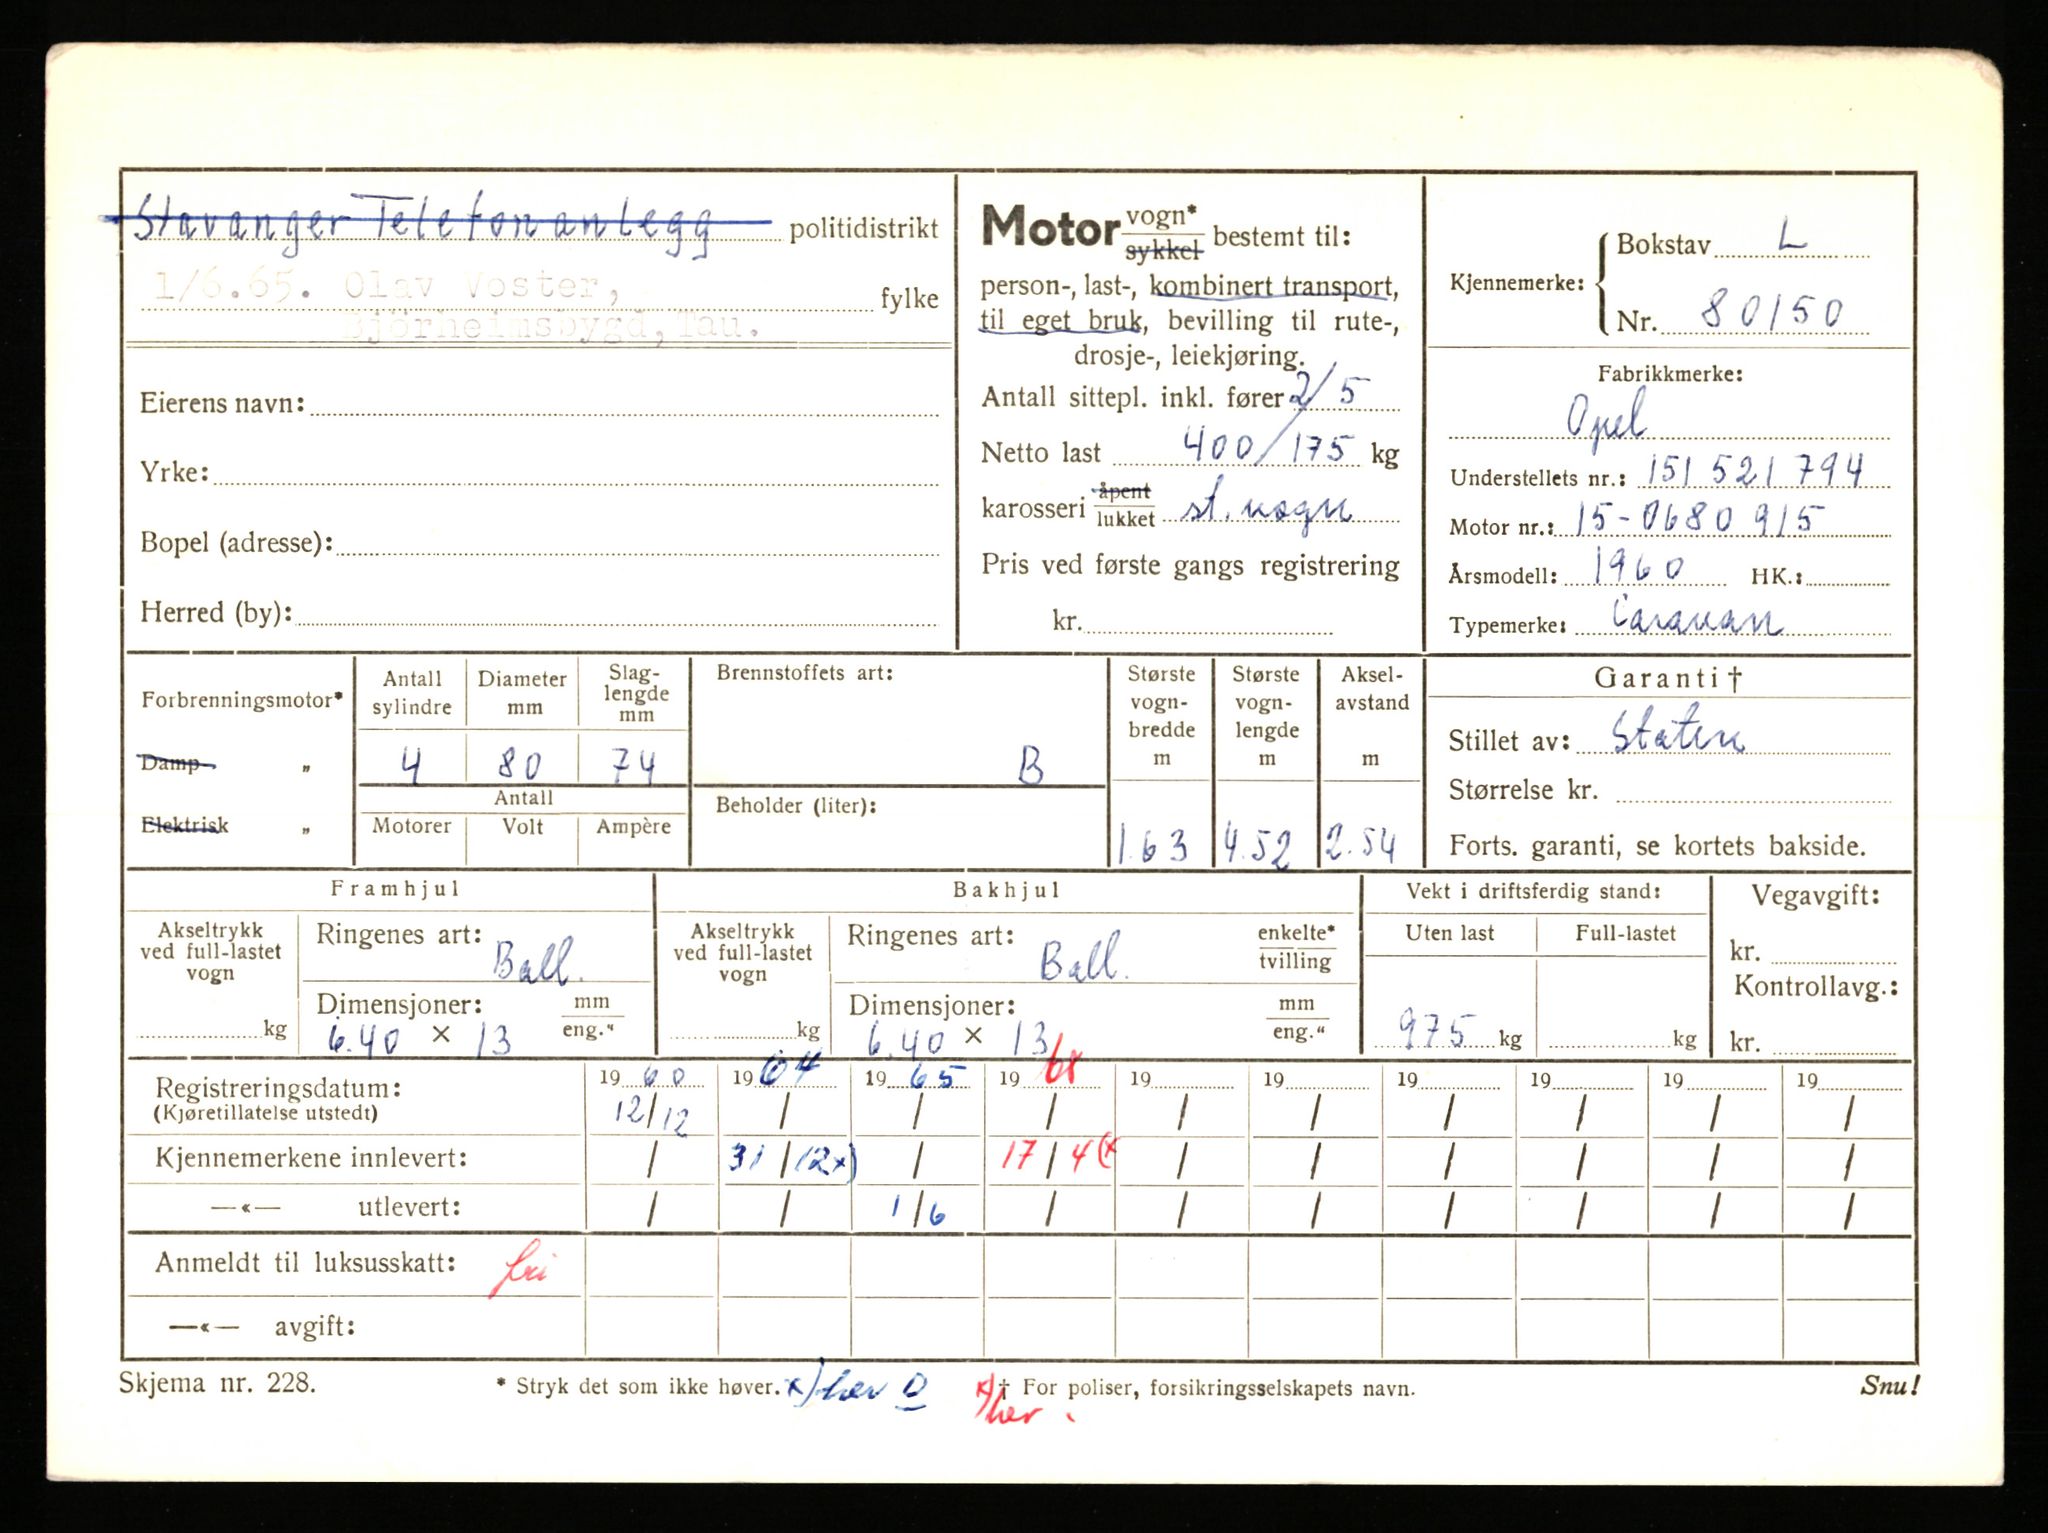 Stavanger Telefonanlegg politidistrikt
1/6.65. Olav Voster, fylke
Bjørheimsbygd, Tau.
Eierens navn:
Yrke:
Bopel (adresse):
Herred (by):
Motor vogn* sykkel bestemt til:
person-, last-, kombinert transport,
til eget bruk, bevilling til rute-,
drosje-, leiekjøring.
Antall sittepl. inkl. fører 2/5
Netto last 400/175 kg
karosseri åpent lukket st. vogn
Pris ved første gangs registrering
kr.
Kjennemerke: Bokstav L
Nr. 80150
Fabrikkmerke:
Opel
Understellets nr.: 151 521 794
Motor nr.: 15-0680915
Årsmodell: 1960 HK.:
Typemerke: Caravan
Forbrenningsmotor*
Damp „
Elektrisk „
Antall sylindre Diameter mm Slag-lengde mm
4 80 74
Antall
Motorer Volt Ampère
Brennstoffets art:
B
Beholder (liter):
Største vogn-bredde m Største vogn-lengde m Aksel-avstand m
1.63 4.52 2.54
Garanti †
Stillet av: Staten
Størrelse kr.
Forts. garanti, se kortets bakside.
Framhjul
Akseltrykk ved full-lastet vogn
kg
Ringenes art:
Ball.
Dimensjoner: mm eng."
6.40 × 13
Bakhjul
Akseltrykk ved full-lastet vogn
kg
Ringenes art: enkelte* tvilling
Ball.
Dimensjoner: mm eng."
6.40 × 13
Vekt i driftsferdig stand:
Uten last Full-lastet
975 kg kg
Vegavgift:
kr.
Kontrollavg.:
kr.
Registreringsdatum: 19 60 19 64 19 65 19 68 19 19 19 19 19 19
(Kjøretillatelse utstedt) 12/12 / / / / / / / / /
Kjennemerkene innlevert: / 31/12 x) / 17/4 (x / / / / / /
—«— utlevert: / / 1/6 / / / / / / /
Anmeldt til luksusskatt: fri
—«— avgift:
Skjema nr. 228. * Stryk det som ikke høver. x) her D x) † For poliser, forsikringsselskapets navn. Snu!
her.